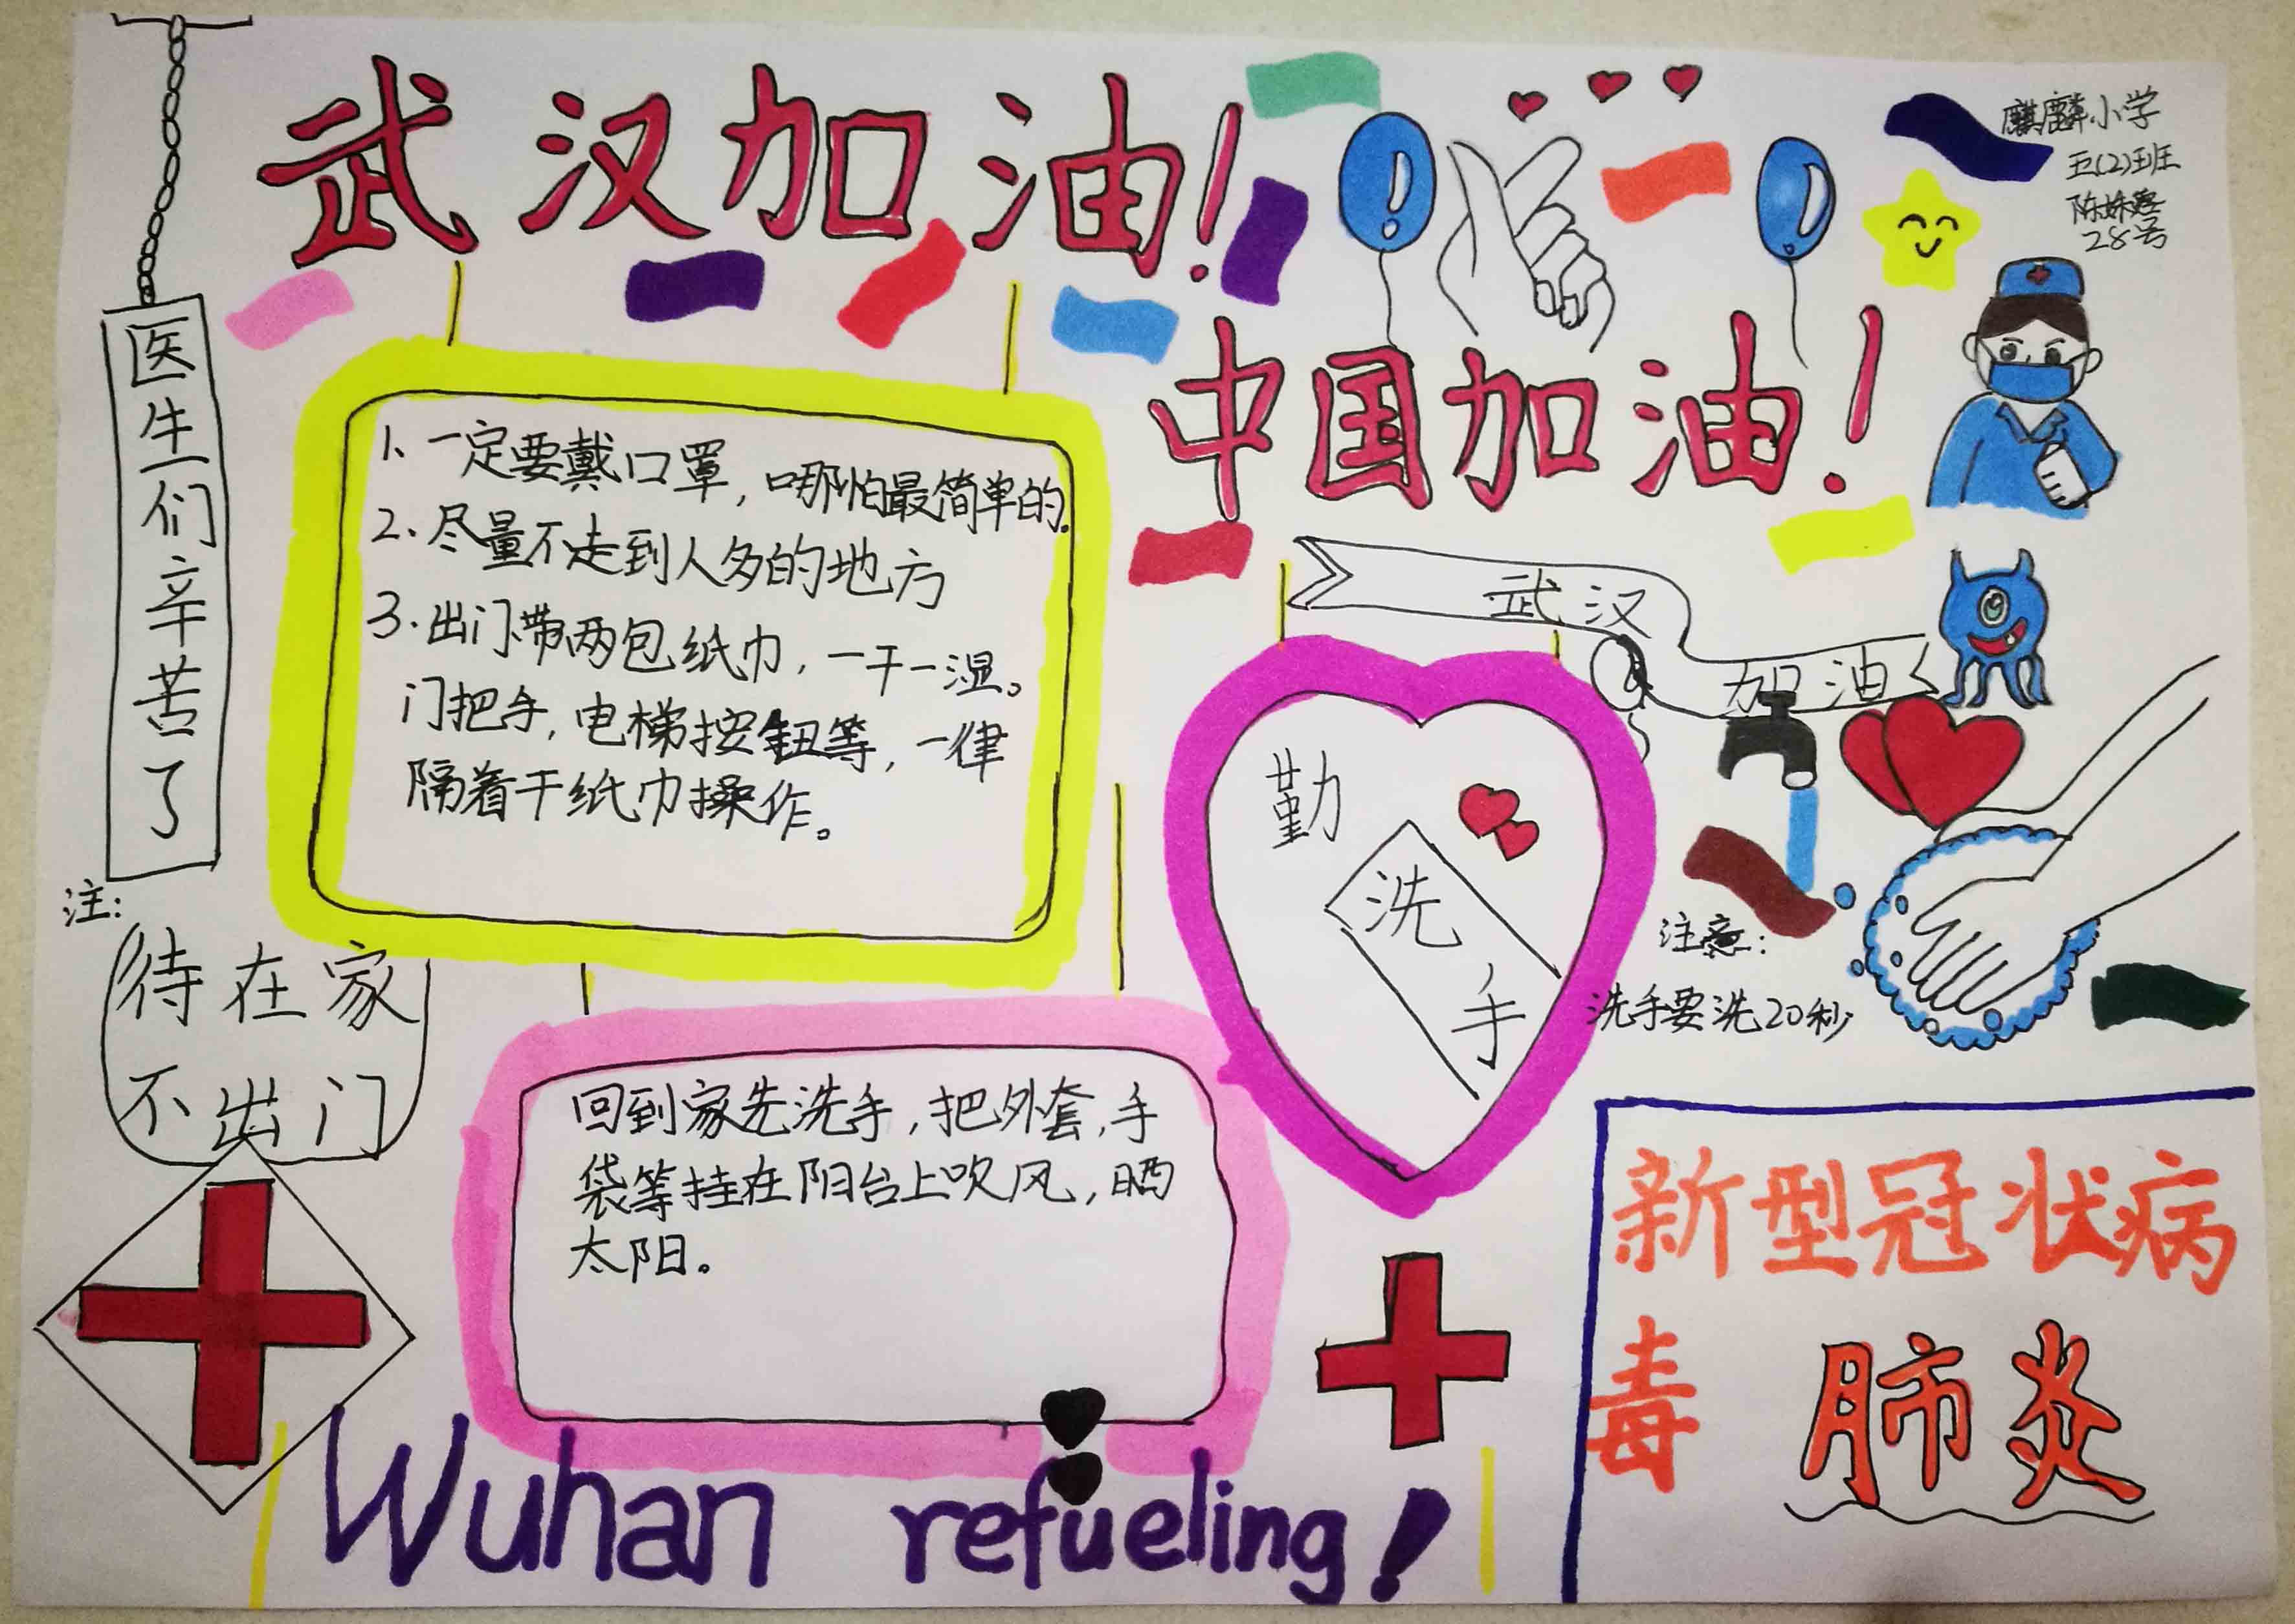 武汉加油！
麒麟小学
五(2)班
28号
中国加油！
医生们辛苦了
1、一定要戴口罩，哪怕最简单的。
2、尽量不走到人多的地方
3、出门带两包纸巾，一干一湿。
门把手，电梯按钮等，一律
隔着干纸巾操作。
武汉
加油
勤
洗
手
注意：
洗手要洗20秒
注：
待在家
不出门
回到家先洗手，把外套，手
袋等挂在阳台上吹风，晒
太阳。
新型冠状病
毒 肺炎
Wuhan refueling!